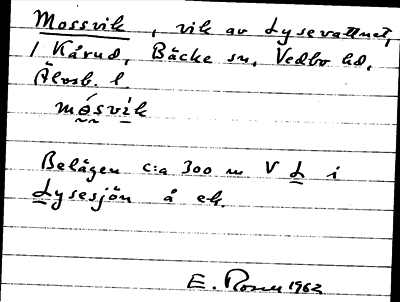 Mossvik, vik av Lysevattnet,
i Kårud, Bäcke sn, Vedbo hd,
Älvsb. l.
mósvìk
Belägen c:a 300 m V L i
Lysesjön å ek.
E. Rosell 1962